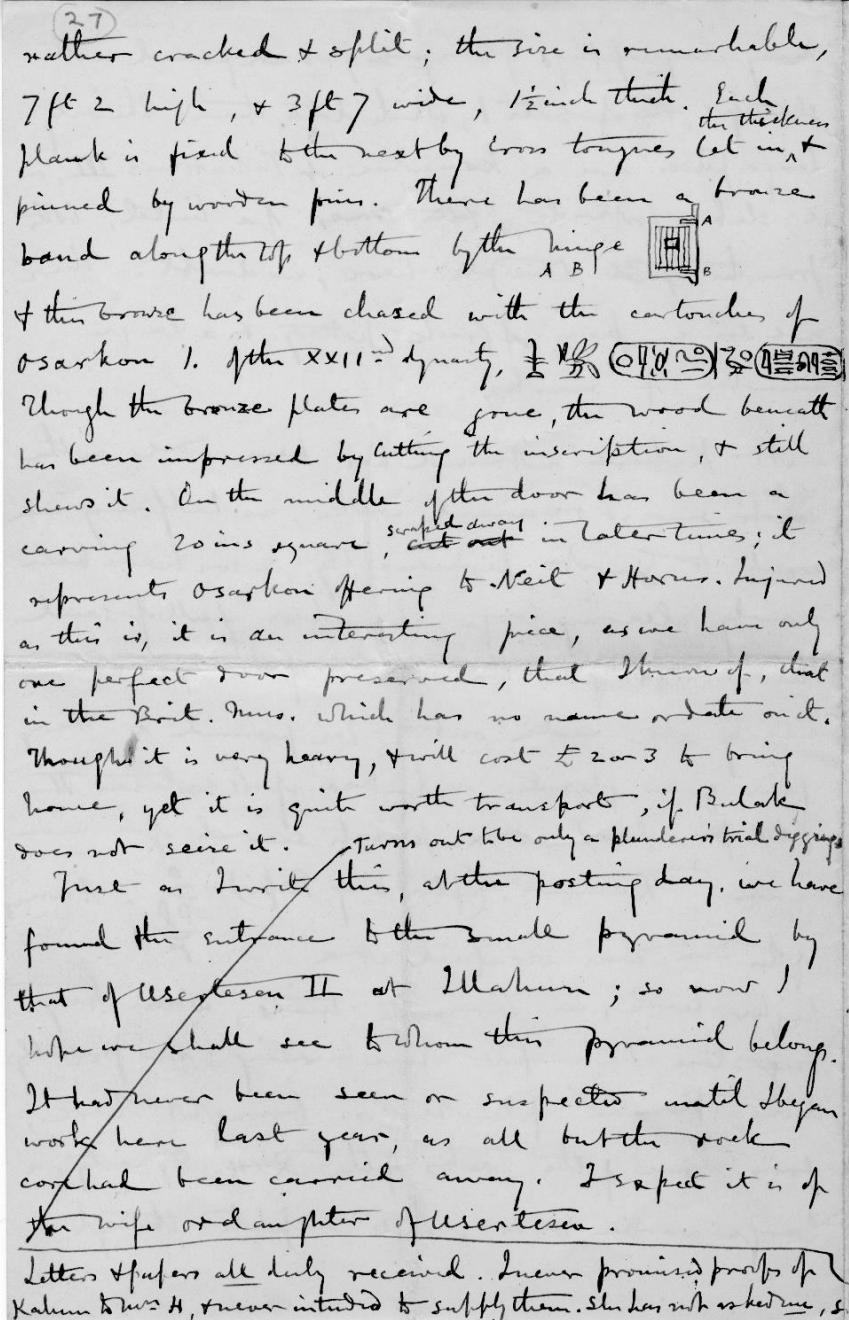 27
rather cracked & split; the size is remarkable,
7 ft 2 high, & 3 ft 7 wide, 1½ inch thick. Each
the thickness
plank is fixed to the next by cross tongues let in ^ &
pinned by wooden pins. There has been a bronze
band along the top & bottom by the hinge
A
A B
B
& this bronze has been chased with the cartouches of
Osarkon I. of the XXIInd dynasty,
Though the bronze plates are gone, the wood beneath
has been impressed by cutting the inscription, & still
shews it. On the middle of the door has been a
scraped away
carving 20 ins square, cut out in later times; it
represents Osarkon offering to Neit & Horus. Injured
as this is, it is an interesting piece, as we have only
one perfect door preserved, that I know of, that
in the Brit. Mus. which has no name or date on it.
Though it is very heavy, & will cost £ 2 or 3 to bring
home, yet it is quite worth transport, if Bulak
does not seize it. Turns out to be only a plunderer's trial diggings
Just as I write this, at the posting day, we have
found the entrance to the small pyramid by
that of Usertesen II at Illahun; so now I
hope we shall see to whom this pyramid belongs.
It had never been seen or suspected until I began
work here last year, as all but the rock
core had been carried away. I expect it is of
the wife or daughter of Usertesen.
Letters & papers all duly received. I never promised proofs of
Kahun to Mrs H, & never intended to supply them. She has not asked me, s